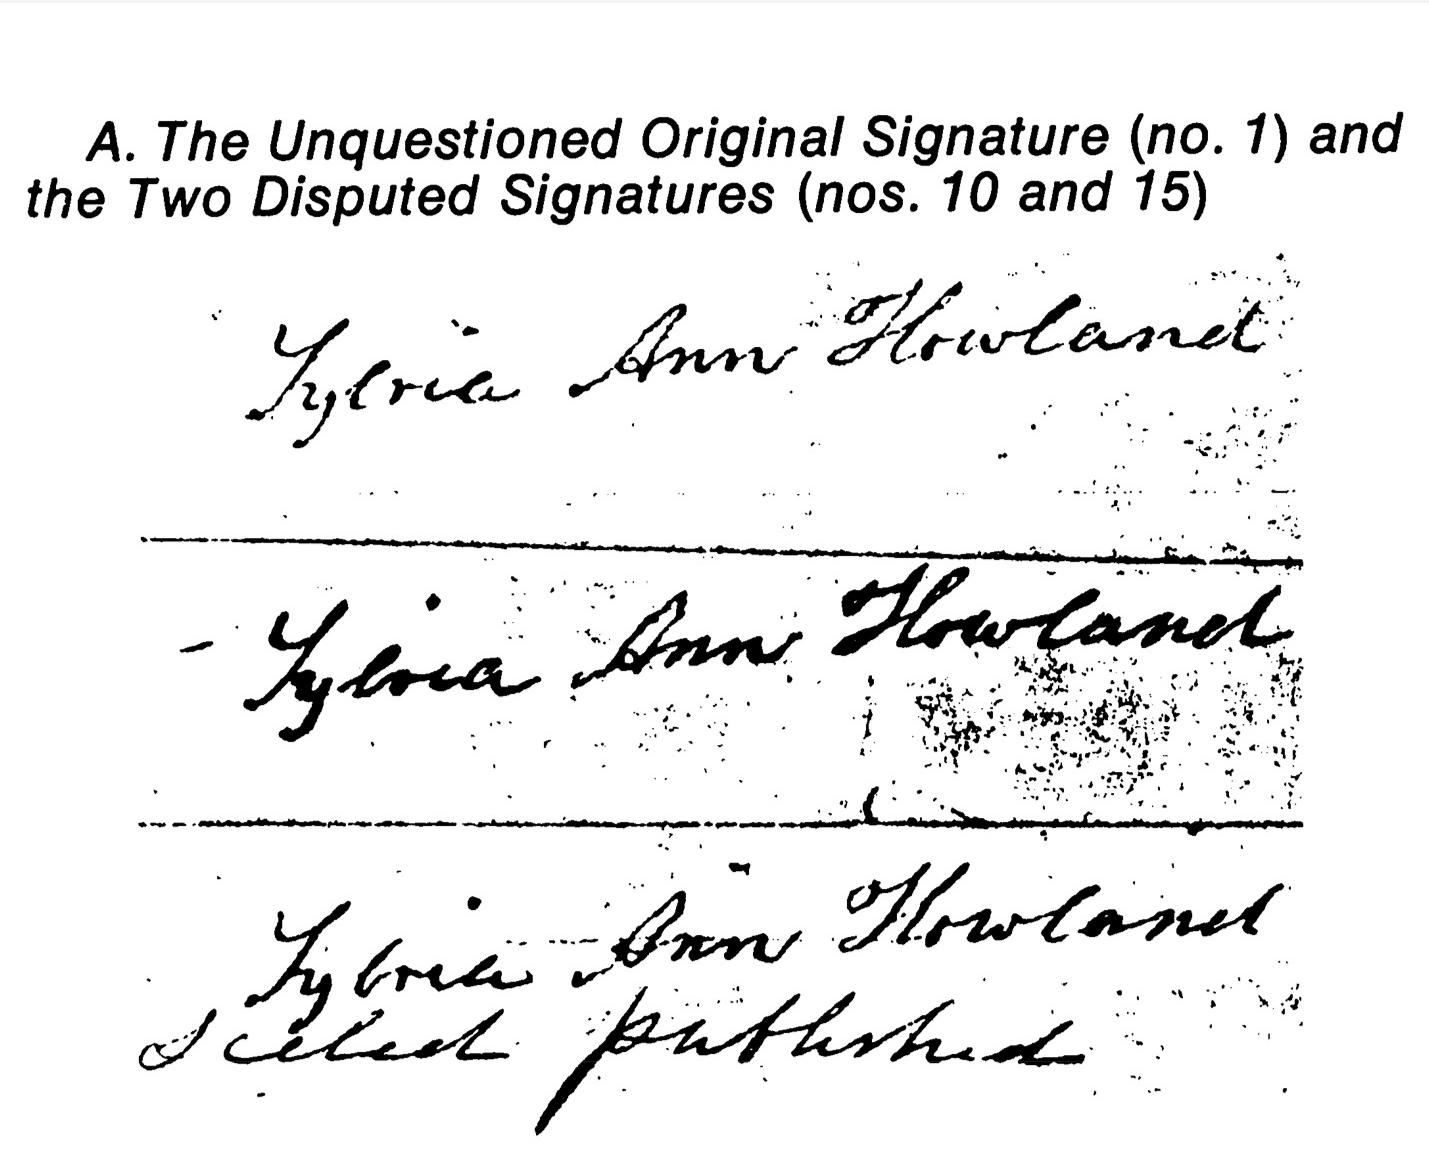 A. The Unquestioned Original Signature (no. 1) and
the Two Disputed Signatures (nos. 10 and 15)
Sylvia Ann Howland
Sylvia Ann Howland
Sylvia Ann Howland
Sealed published